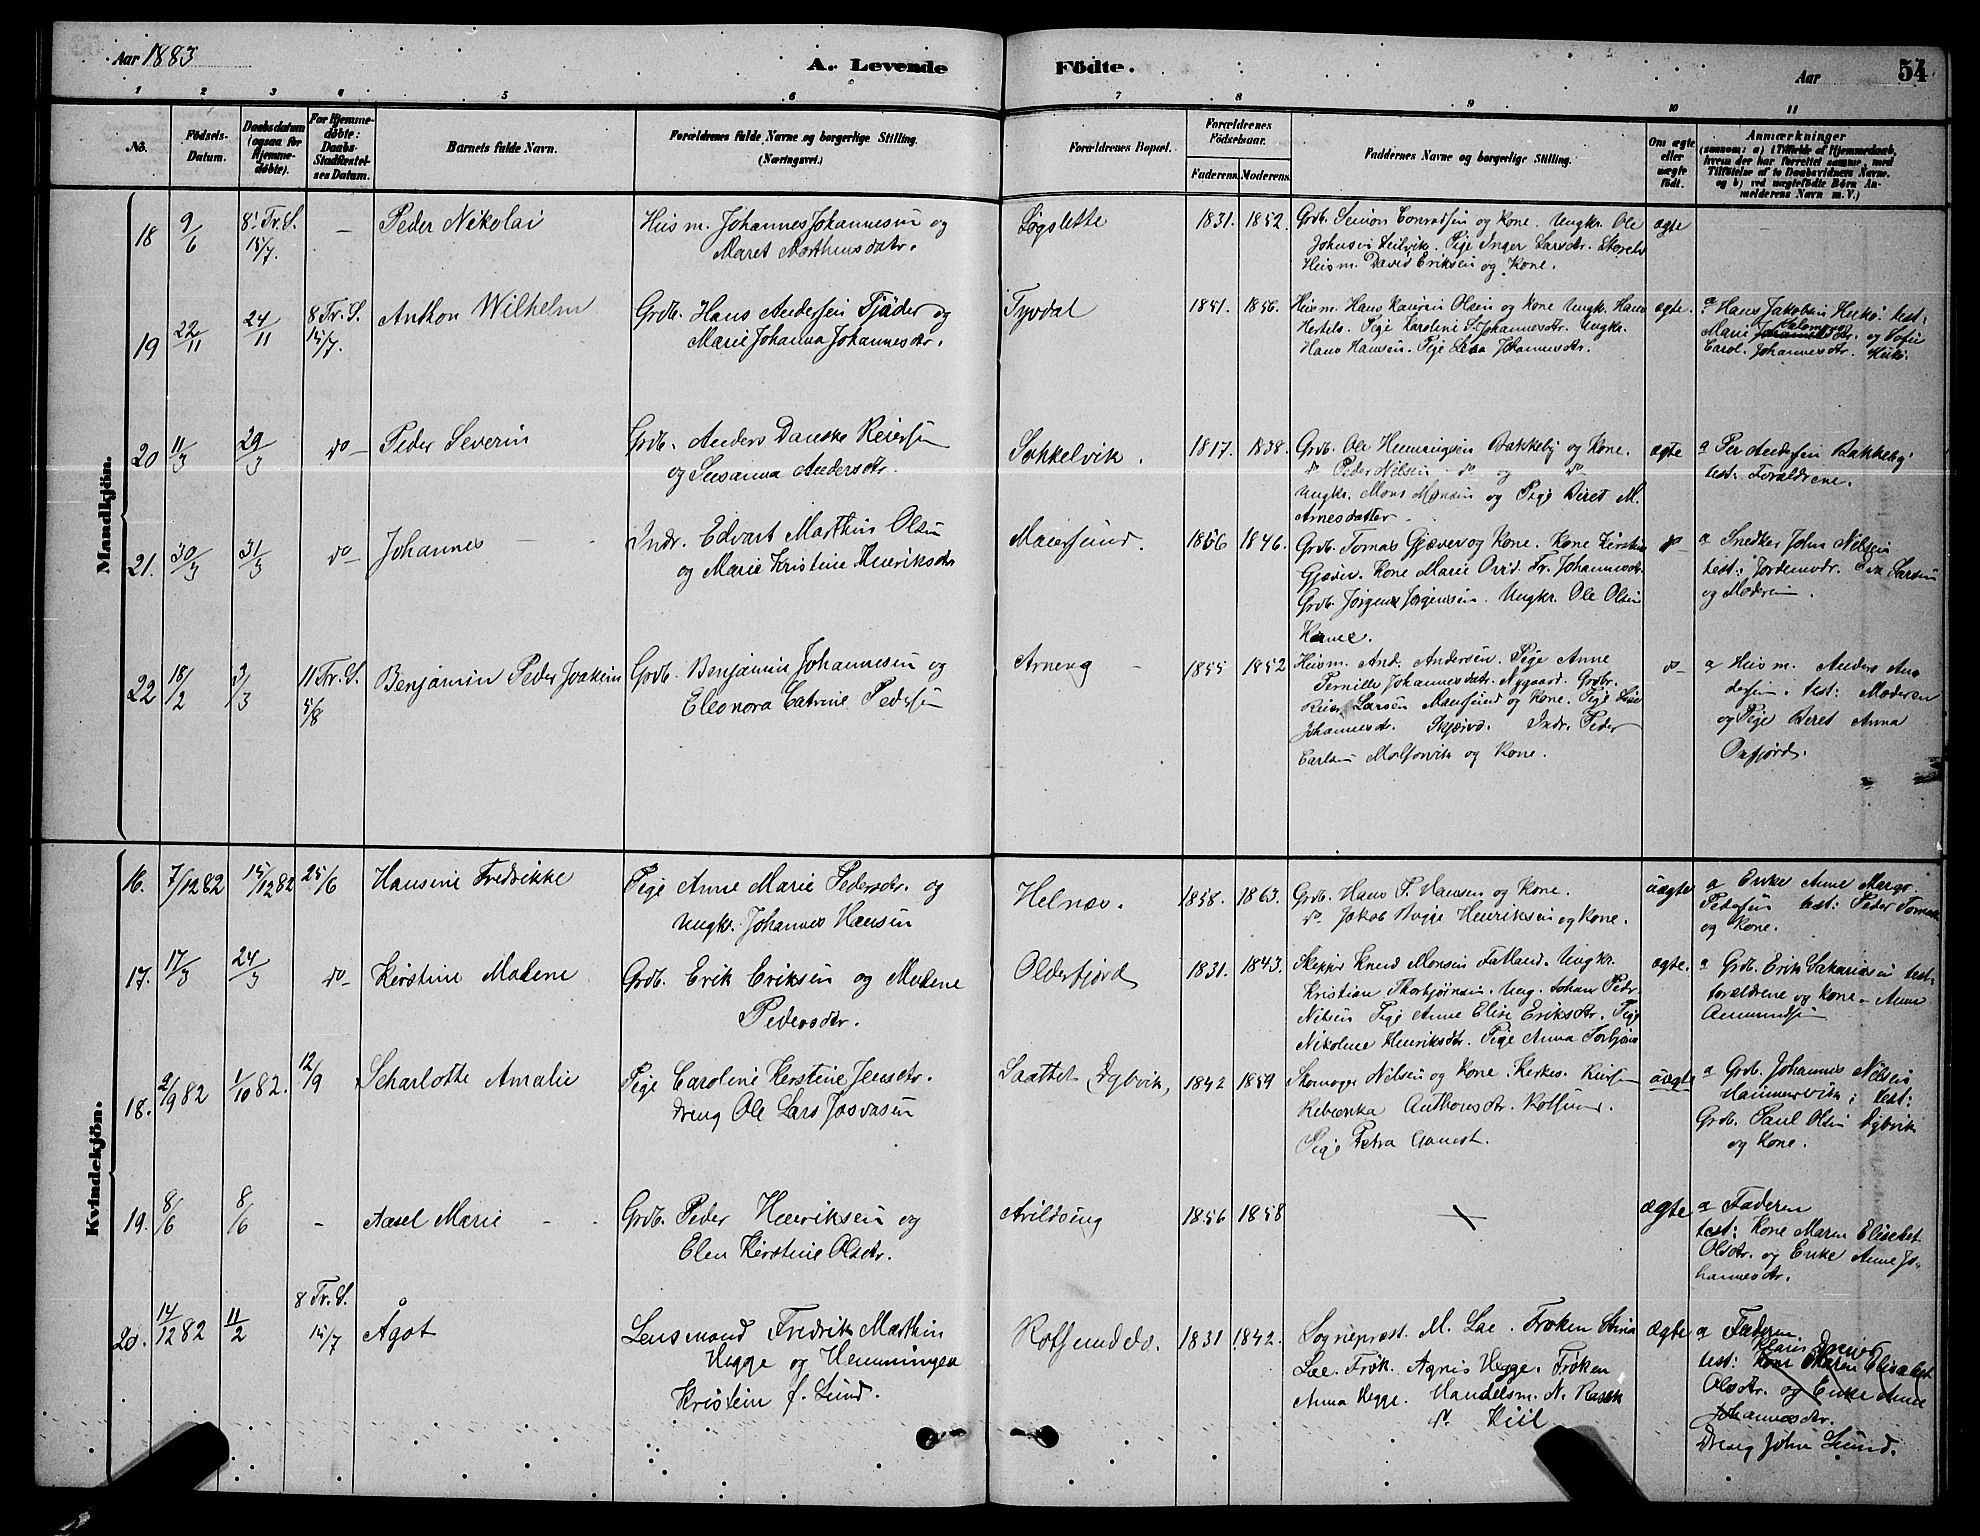 Aar 1883
A. Levende Födte.
Aar
54
1 2 3 4 5 6 7 8 9 10 11
No.
Födsels-
Datum.
Daabsdatum
(ogsaa for
Hjemme-
døbte).
For Hjemme-
døbte:
Daabs-
Stadfæstel-
ses Datum.
Barnets fulde Navn.
Forældrenes fulde Navne og borgerlige Stilling.
(Næringsvei.)
Forældrenes Bopæl.
Forældrenes
Födselsaar.
Faderens. Moderens.
Faddernes Navne og borgerlige Stilling.
Om ægte
eller
uægte
födt.
Anmærkninger
(saasom: a) i Tilfælde af Hjemmedaab,
hvem der har forrettet samme, med
Tilföielse af to Daabsvidners Navne.
og b) ved uægtefödte Börn An-
melderens Navn m. V.)
Mandkjön.
18 9/6 8. Tr. S. 15/7. – Peder Nikolai
Husm. Johannes Johannesen og
Maret Morthensdatr.
Løgslette 1831. 1852.
Grdb. Simon Conradsen og Kone. Ungkr. Ole
Johnsen Leilvik. Pige Inger Larsdr. Storelv
Husm. David Eriksen og Kone.
ægte –
19 22/11 24/11 8 Tr. S. 15/7. Anthon Wilhelm
Grdb. Hans Andersen Fjäder og
Marie Johanna Johannesdr.
Tyvdal 1851. 1856.
Husm. Hans Olsen og Kone Ungkr. Hans
Hertels. Pige Karoline S. Johannesdr. Ungkr.
Hans Hansen. Pige Lena Johannesdr.
ægte.
a Hans Jakobsen test:
Marie dr. og Sofie
Carol. Johannesdr.
20 11/3 29/3 do Peder Severin
Grdb. Anders Danske Reiersen
og Susanna Andersdr.
Sokkelvik. 1817. 1838.
Grdb. Ole Henningsen Bakkeby og Kone.
do Peder Nilsen do og do
Ungkr. Mons Monsen og Pige Beret M.
Arnesdatter
ægte
a Per Andersen Bakkeby
test: Forældrene.
21. 30/3 31/3 do Johannes
Indr. Edvart Marthin Olsen
og Marie Kristine Henriksdr
Maursund. 1856 1846.
Grdb. Tomas Gjæver og Kone. Kone Kirstine
Gjæver. Kone Marie Ovid. Fr. Johannesdr.
Grdb. Jørgen Jørgensen. Ungkr. Ole Olsen
do
a Snedker John Nilsen
test: Jordemodr. Larsen
og Moderen.
22 18/2 3/3 11 Tr. S. 5/8 Benjamin Peder Joakim
Grdb. Benjamin Johannesen og
Eleonora Catrine Pedersen
Arneng 1855 1852
Husm. And. Andersen. Pige Anne
Pernille Johannesdatr. Nygaard. Grdbr.
Reier Larsen Maursund og Kone. Pige
Johannesdr. Skjervø. Indr. Peder
Carlsen og Kone.
do
a Husm. Anders An
dersen. test: Moderen
og Pige Beret Anna
Oxfjord.
Kvindekjön.
16. 7/12 82 15/12 82 25/6 Hansine Fredrikke
Pige Anne Marie Pedersdr. og
Ungk. Johannes Hansen
Helnæs. 1858. 1863.
Grdb. Hans P. Hansen og Kone.
do. Jakob Bugge Henriksen og Kone.
uægte
a Enke Anne Margr.
Pedersen test: Peder
og Kone.
17. 17/3 24/3 do Kirstine Madene
Grdb. Erik Eriksen og Madene
Pedersdr.
Olderfjord 1831. 1843.
Skippr Knud Monsen Fatland. Ungkr.
Kristian Thorbjørnsen. Ung. Johan Pedr
Nilsen Pige Anne Elise Eriksdr. Pige
Nikoline Henriksdr. Pige Anna Torbjøns
ægte.
a Grdb. Erik Sakariasen test:
forældrene og Kone – Anne
Aanundsen
18. 2/9 82 1/10 82. 12/9 Scharlotte Amalie
Pige Caroline Kerstine Jensdr.
Dreng Ole Lars Josvasen
Saattet Dybvik, 1842 1859
Skomager Nilsen og Kone.
Anthonsdr. Rotsund.
Pige Petra
uægte
a Grdb. Johannes Nilsen
Hammervik; test:
Grdb. Paul Olsen Dybvik
og Kone.
19. 8/6 8/6 – Aasel Marie
Grdb. Peder Henriksen og
Elen Kirstine Olsdr.
Avildseng 1856 1858
ægte
a Faderen
test: Kone Maren Elisebet
Olsdr. og Enke Anne Jo-
hannesdr.
20. 14/12 82 11/2 8 Tr. S. 15/7 Ågot
Lensmand Fredrik Marthin
Hegge og Hemmingea
Kristein f. Lund.
Rotsundelv. 1831. 1842.
Sogneprest. M. Lae. Frøken Stina
Lae. Frøk. Agnes Hegge. Frøken
Anna Hegge. Handelsm. N. Rasch
do. Kiil
ægte
a Faderen.
Klaus
test: Kone Maren Elisabet
Olsdr. og Enke Anne
Johannesdr.
Dreng John Lund.